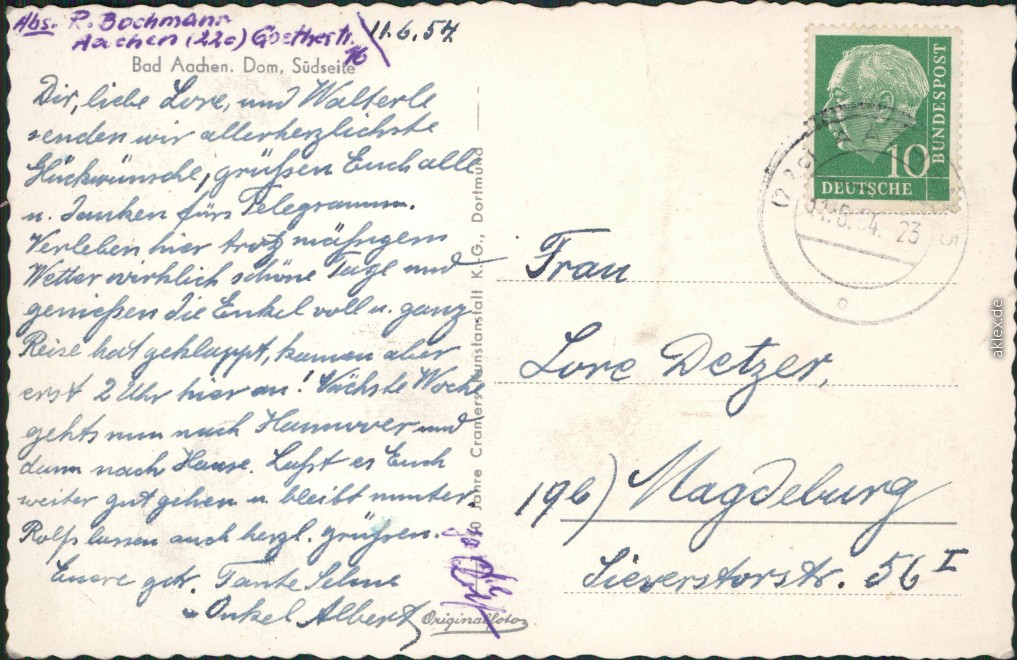 Abs. R. Bochmann
Aachen (22c) Goethestr. 16
11.6.54
Bad Aachen. Dom, Südseite
Dir, liebe Lore, und Walterle
senden wir allerherzlichste
Glückwünsche, grüßen Euch alle
u. danken fürs Telegramm.
Verleben hier trotz mäßigem
Wetter wirklich schöne Tage und
genießen die Enkel voll u. ganz.
Reise hat geklappt, kamen aber
erst 2 Uhr hier an! Nächste Woche
gehts nun nach Hannover und
dann nach Hause. Laßt es Euch
weiter gut gehen u. bleibt munter
Rolfs lassen auch herzl. grüßen.
Eure getr. Tante Selma
u. Onkel Albert
Originalfoto
40 Jahre Cramers Kunstanstalt K.-G., Dortmund
10
DEUTSCHE
BUNDESPOST
(22c) AA
11.6.54. 23
Frau
Lore Detzer,
19b) Magdeburg
Sieverstorstr. 56 I
aklex.de